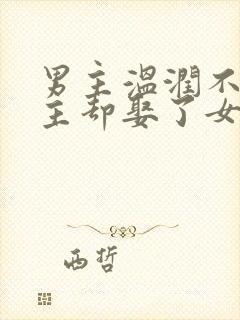 男主温润不
主却娶了女
西哲